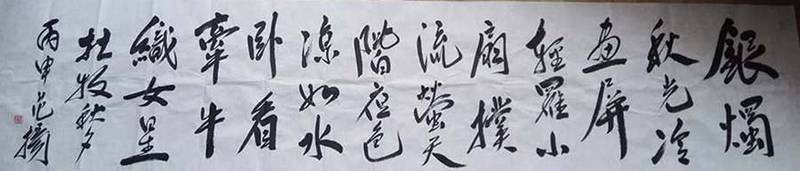 銀燭
秋光冷
畫屏
輕羅小
扇撲
流螢天
階夜色
涼如水
卧看
牽牛
織女星
杜牧秋夕
丙申